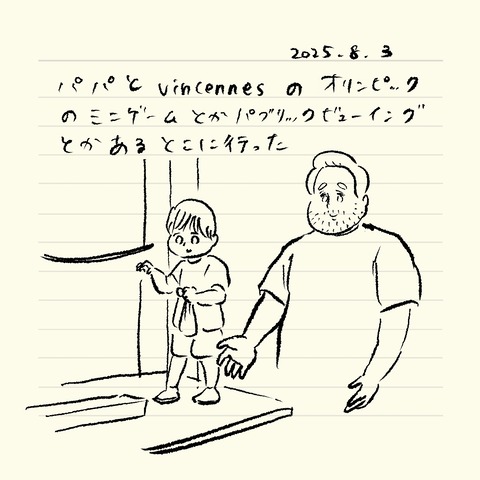 2025.8.3
パパと vincennes の オリンピック
の ミニゲーム とか パブリックビューイング
とか ある とこに行った